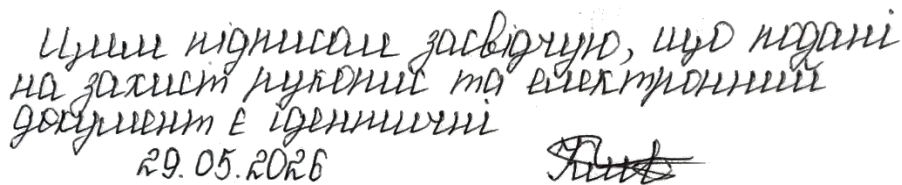 Цим підписом засвідчую, що подані
на захист рукопис та електронний
документ є ідентичні
29.05.2026